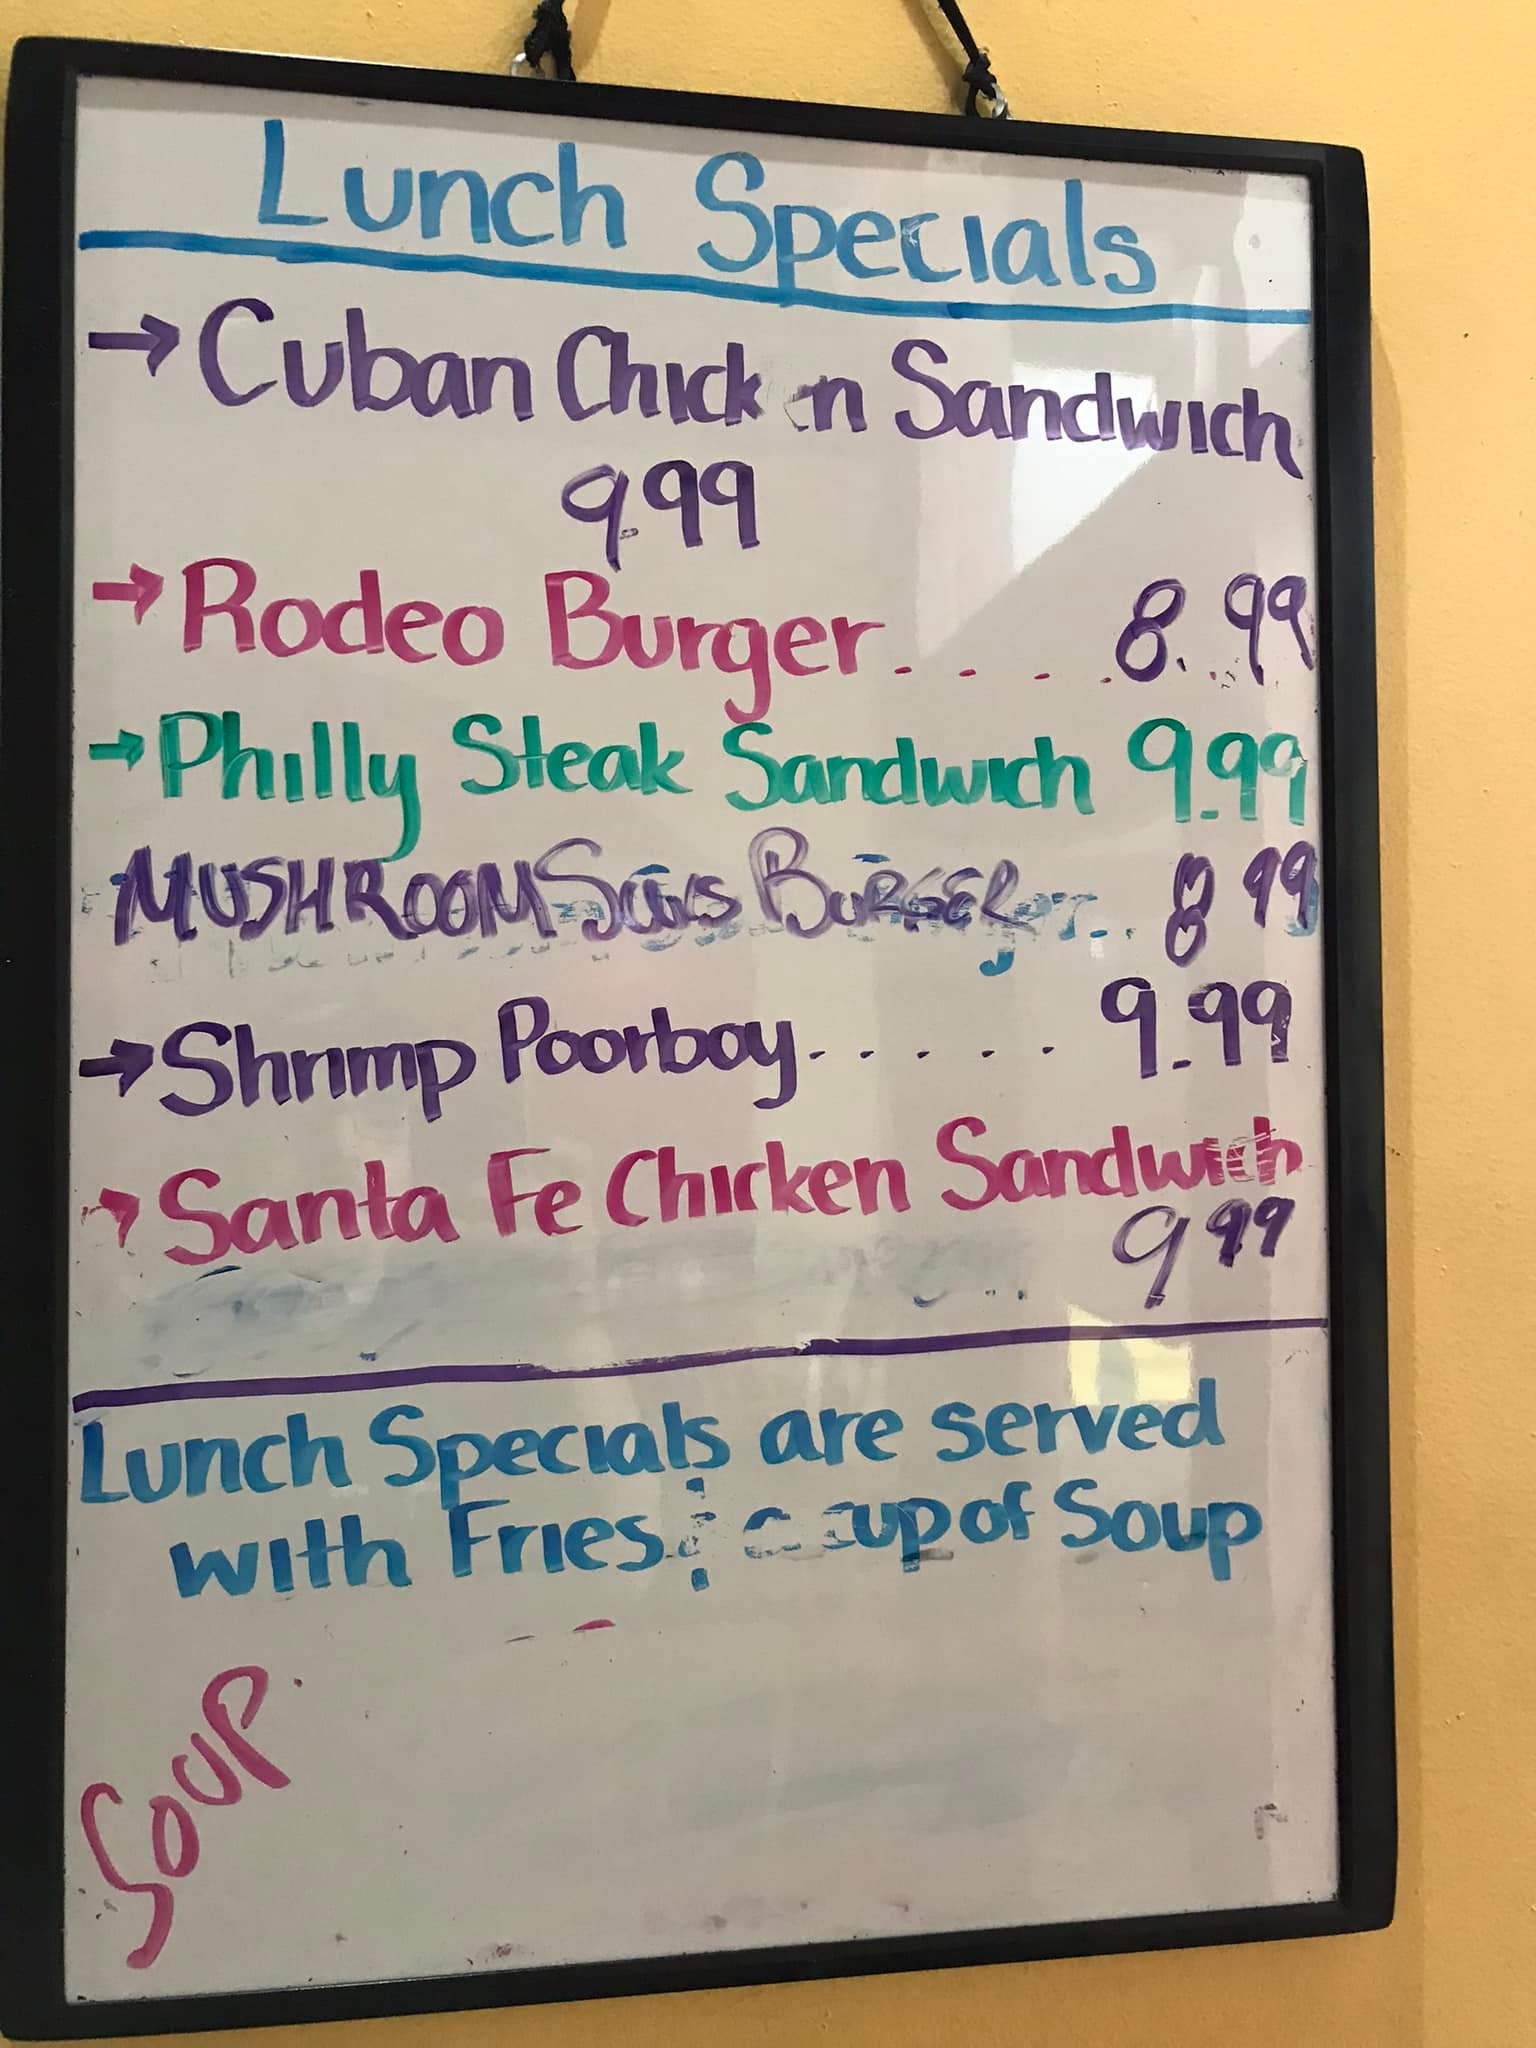 Lunch Specials
→ Cuban Chicken Sandwich
9.99
→ Rodeo Burger.... 8.99
→ Philly Steak Sandwich 9.99
MUSHROOM Swiss BURGER .. 8 99
→ Shrimp Poorboy..... 9.99
→ Santa Fe Chicken Sandwich
9 99
Lunch Specials are served
with Fries & a cup of Soup
Soup